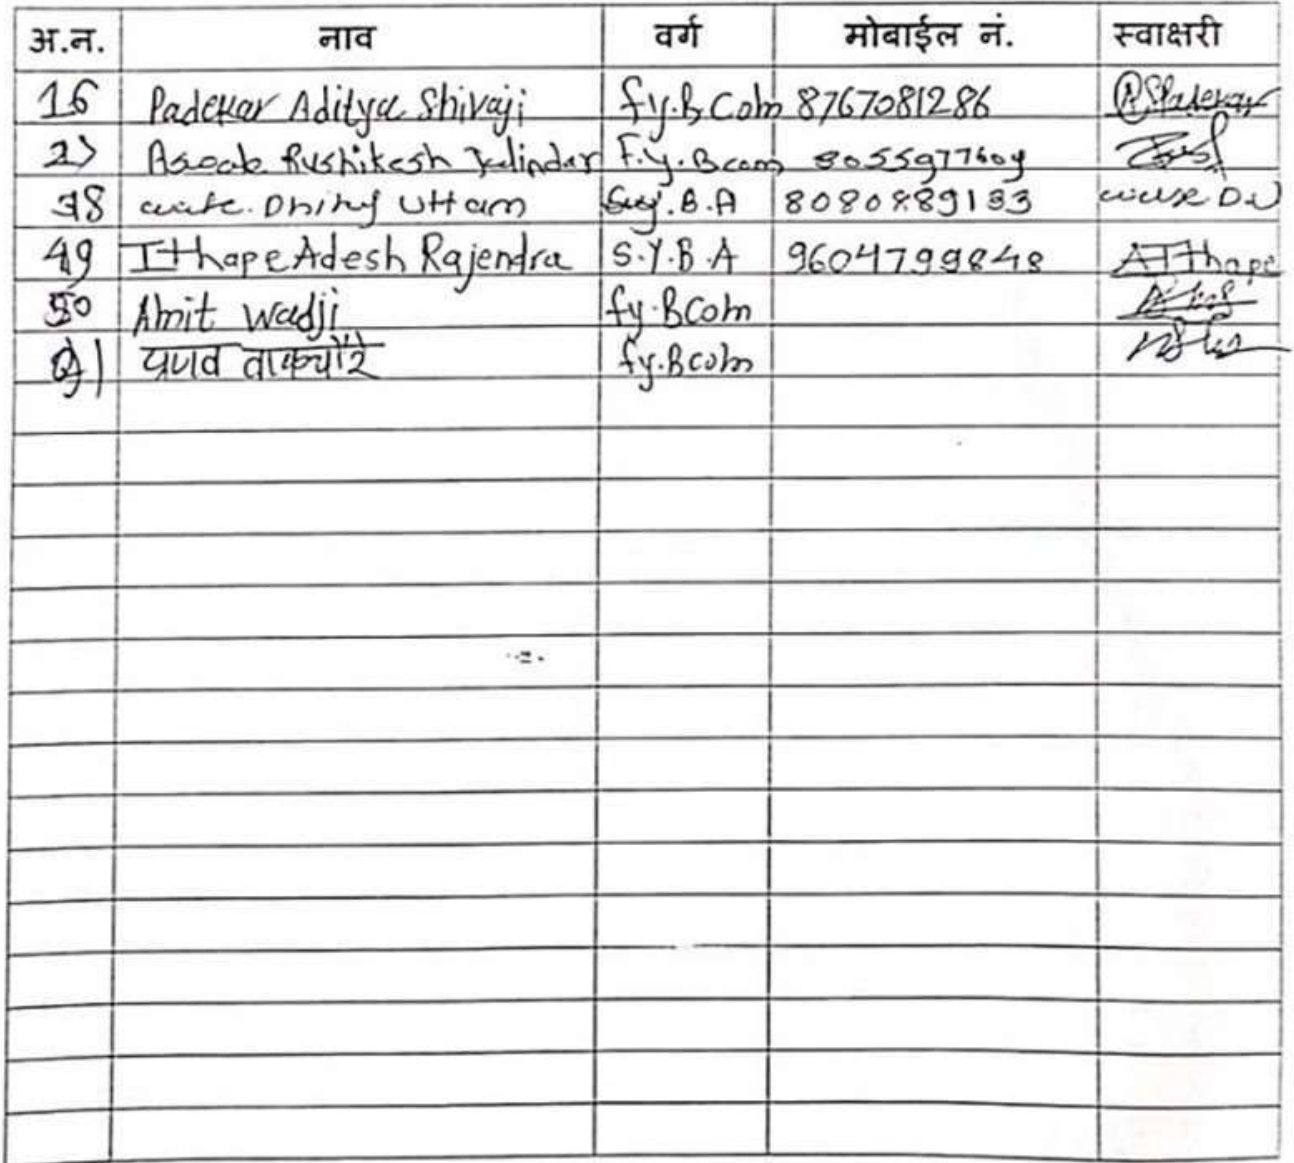 अ.न. नाव वर्ग मोबाईल नं. स्वाक्षरी
16 Padekar Aditya Shivaji fy.B.Com 8767081286
Rushikesh Jalindar F.Y.Bcom 8055977604
Uttam B.A 8080889133
49 Ithape Adesh Rajendra S.Y.B.A 9604799848 AIthape
50 Amit Wadji fy.BCom
प्रणव ताकचौरे fy.Bcom